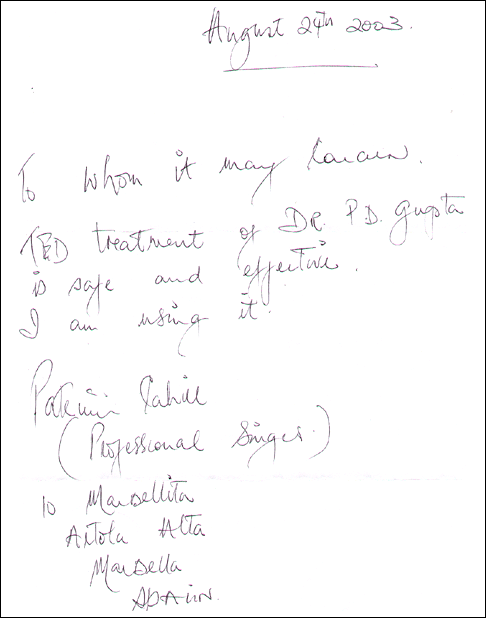 August 24th 2003.
To whom it may concern.
TED treatment of DR. P.D. Gupta
is safe and effective.
I am using it.
Cahill
(Professional Singer.)
10 Marbellita
Artola Alta
Marbella
SPAIN.